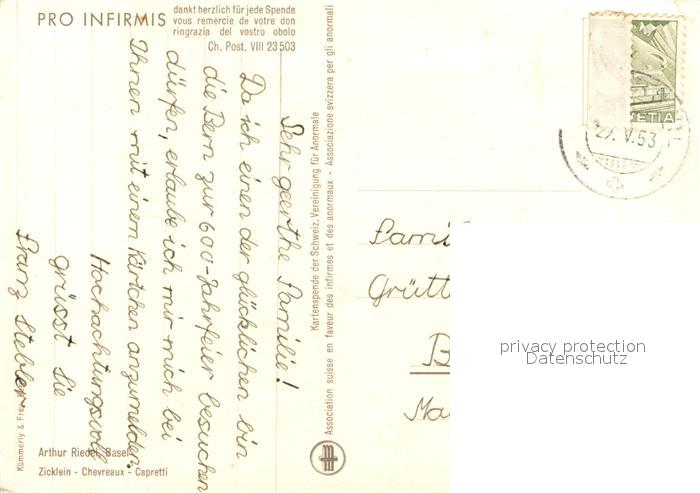 PRO INFIRMIS
dankt herzlich für jede Spende
vous remercie de votre don
ringrazia del vostro obolo
Ch. Post. VIII 23503
Sehr geerthe Familie!
Da ich einen der glücklichen bin
die Bern zur 600-Jahrfeier besuchen
dürfen, erlaube ich mir mich bei
Ihnen mit einem Kärtchen anzumelden.
Hochachtungsvoll
grüsst Sie
Franz Stebler
Kümmerly & Frey
Arthur Riedel, Basel
Zicklein - Chevreaux - Capretti
Kartenspende der Schweiz. Vereinigung für Anormale
Association suisse en faveur des infirmes et des anormaux - Associazione svizzera per gli anormali
HELVETIA
27. V. 53
Fami
Grütt
B
Ma
privacy protection
Datenschutz